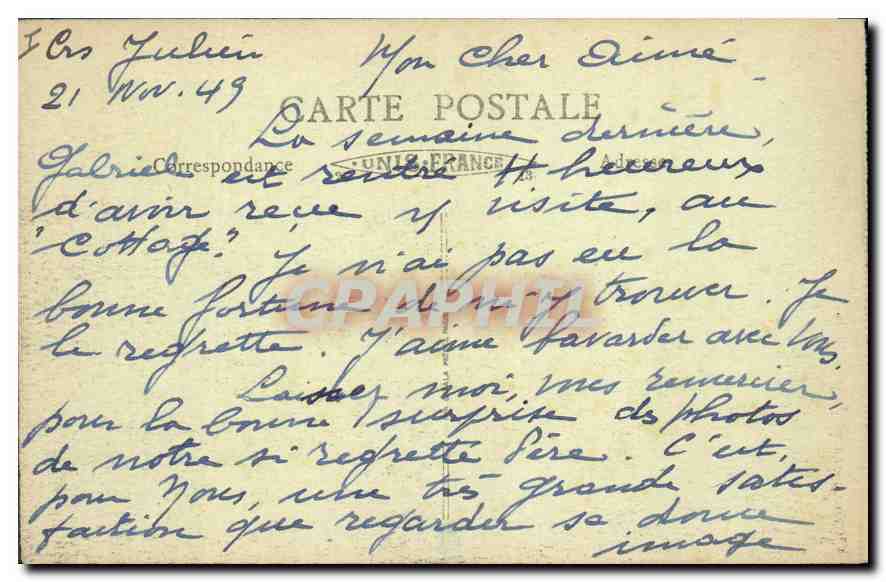 1 Crs Julien Mon cher Aimé
21 Nov. 49
CARTE POSTALE
La semaine dernière,
Correspondance UNIS-FRANCE Adresse
Gabriel est rentré tt heureux
d'avoir reçu ma visite, au
"Cottage". Je n'ai pas eu la
bonne fortune de m'y trouver. Je
le regrette. J'aime bavarder avec vous.
Laissez moi, vous remercier,
pour la bonne surprise des photos
de notre si regretté Père. C'est,
pour Nous, une très grande satis-
faction que regarder sa douce
image
CPAPHIL